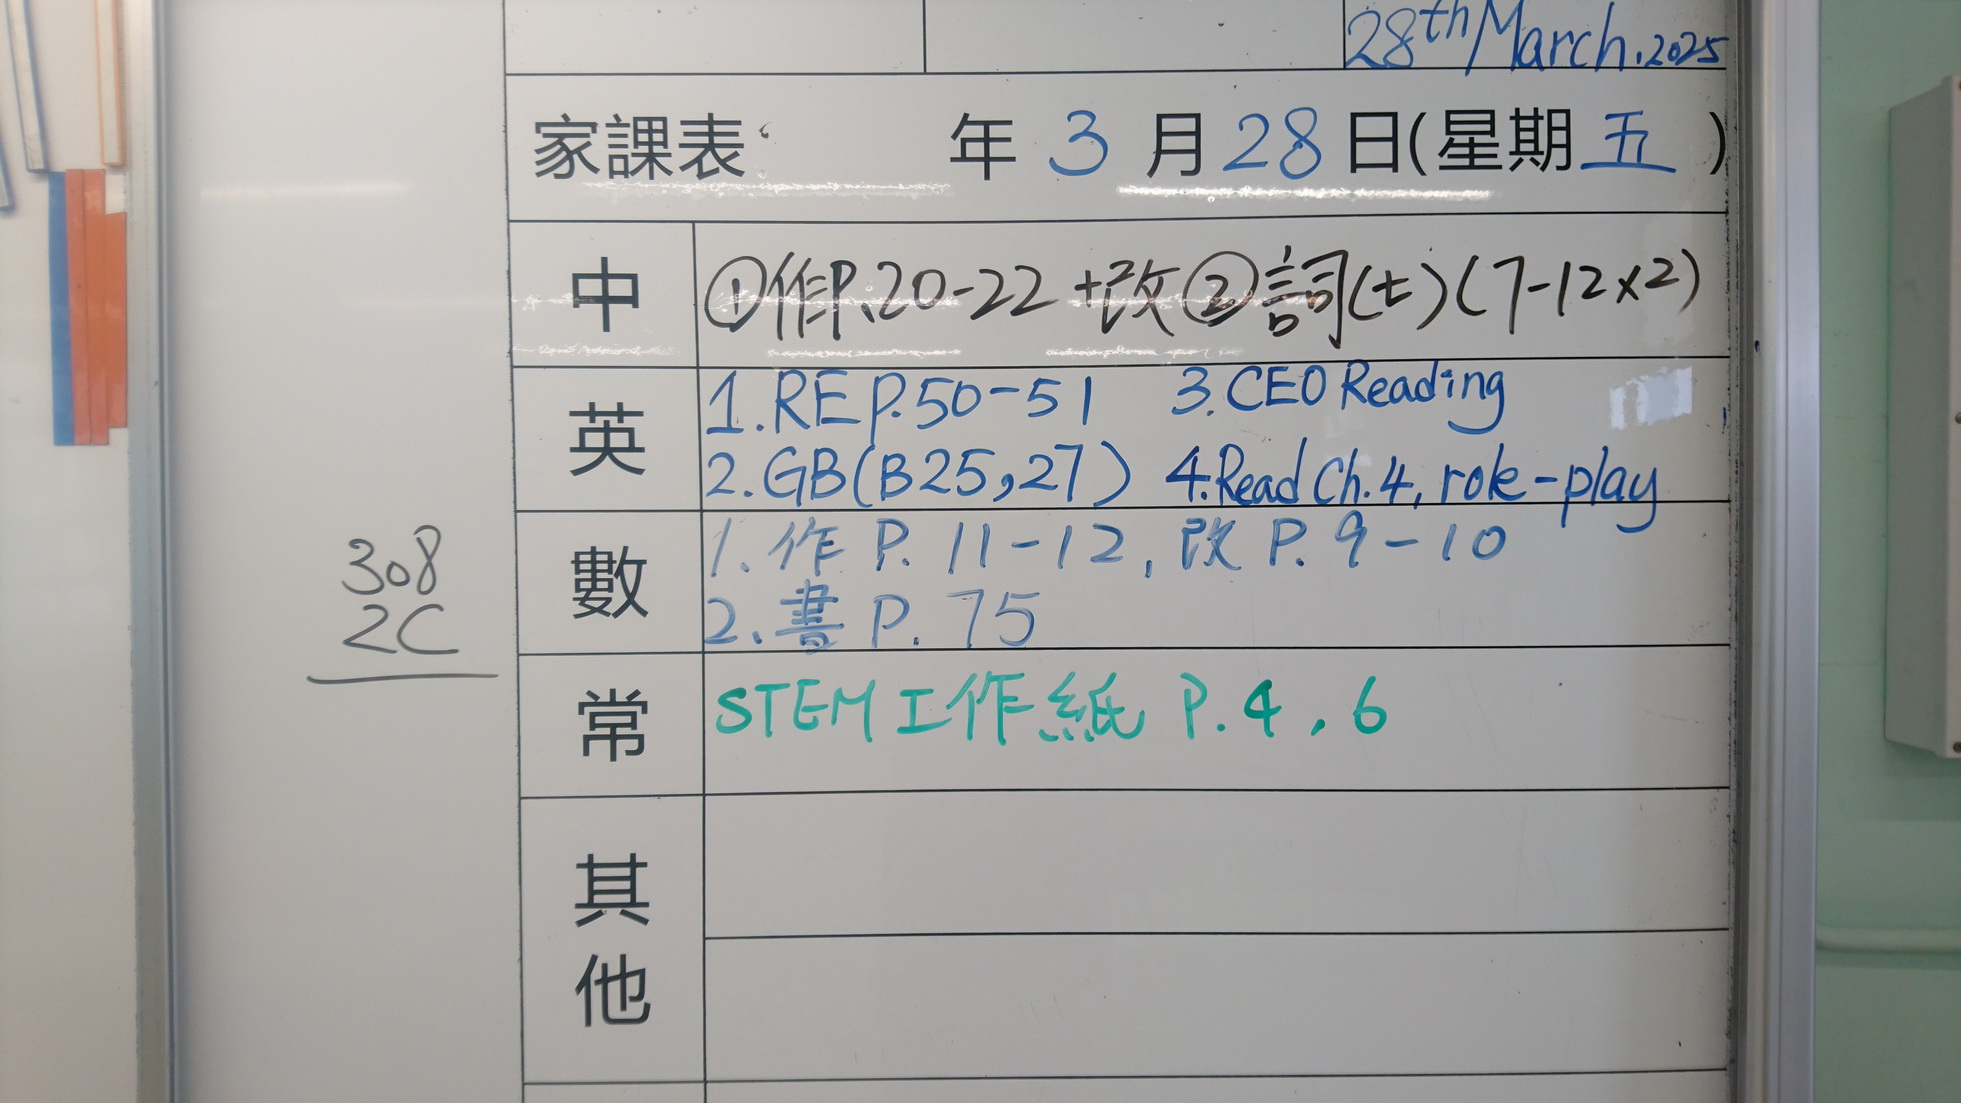 28th March. 2025
家課表: 年 3 月 28 日(星期 五 )
中 ①作P.20-22 +改 ②詞(七)(7-12x2)
英 1. RE P.50-51 3. CEO Reading
2. GB(B25,27) 4. Read Ch.4, role-play
數 1. 作 P. 11-12, 改 P. 9-10
2. 書 P. 75
常 STEM工作紙 P.4,6
其他
308
2C